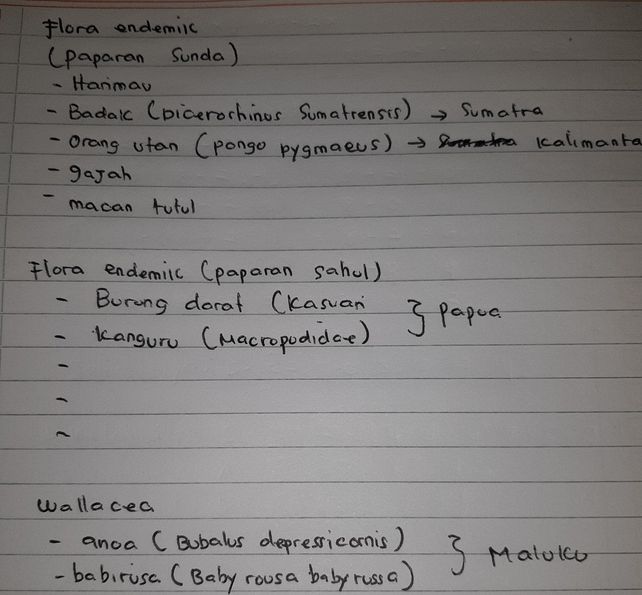 Flora endemik
(paparan Sunda)
- Harimau
- Badak (Dicerorhinus Sumatrensis) → Sumatra
- Orang utan (pongo pygmaeus) → Sumatra Kalimanta
- gajah
- macan tutul
Flora endemik (paparan sahul)
- Burung darat (Kasuari } papua
- Kanguru (Macropodidae)
-
-
-
Wallacea
- anoa (Bubalus depressicornis) } Maluku
- babirusa (Baby rousa baby russa)